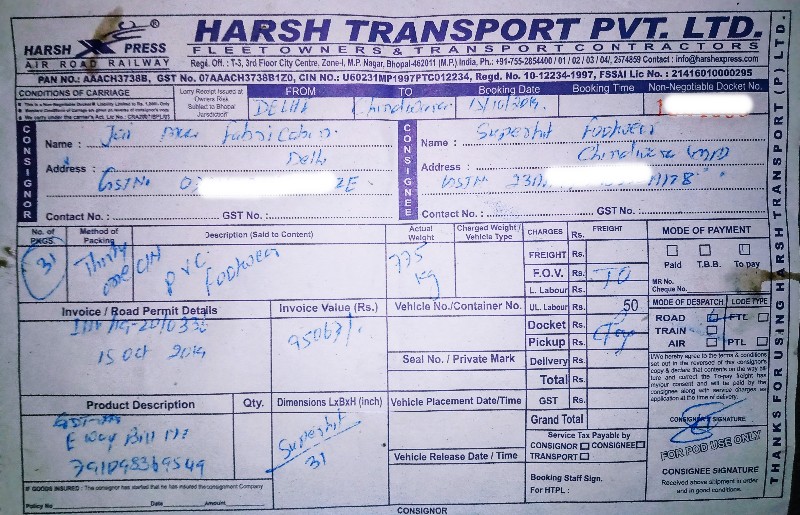 HARSH XPRESS
AIR ROAD RAILWAY
HARSH TRANSPORT PVT. LTD.
FLEET OWNERS & TRANSPORT CONTRACTORS
Regd. Off. : T-3, 3rd Floor City Centre, Zone-I, M.P. Nagar, Bhopal-462011 (M.P.) India, Ph.: +91-755-2854400 / 01 / 02 / 03 / 04/, 2574859 Contact : info@harshexpress.com
PAN NO.: AAACH3738B, GST No. 07AAACH3738B1Z0, CIN NO.: U60231MP1997PTC012234, Regd. No. 10-12234-1997, FSSAI Lic No. : 21416010000295
CONDITIONS OF CARRIAGE
Lorry Receipt Issued at Owners Risk Subject to Bhopal Jurisdiction
FROM TO Booking Date Booking Time Non-Negotiable Docket No.
DELHI
CONSIGNOR
Name : Jai Fabrication
Address : Delhi
GST No
Contact No. : GST No. :
CONSIGNEE
Name : Superhit Footwear
Address :
GSTN
Contact No. : GST No. :
No. of PKGS.
Method of Packing
Description (Said to Content)
Actual Weight
Charged Weight / Vehicle Type
31
Thirty one
PVC Footwear
775 kg
CHARGES Rs. FREIGHT
FREIGHT Rs.
F.O.V. Rs. TO
L. Labour Rs.
UL. Labour Rs. 50
Docket Rs.
Pickup Rs.
Delivery Rs.
Total Rs.
GST Rs.
Grand Total
MODE OF PAYMENT
Paid T.B.B. To pay
MR No.
Cheque No.
MODE OF DESPATCH LODE TYPE
ROAD FTL
TRAIN
AIR PTL
Invoice / Road Permit Details
15 Oct 2019
Invoice Value (Rs.)
95063/.
Vehicle No./Container No.
Seal No. / Private Mark
Vehicle Placement Date/Time
Vehicle Release Date / Time
I/We hereby agree to the terms & conditions set out in the reversed of this consignor's copy & declare that contents on the way bill
Product Description
Qty.
Dimensions LxBxH (inch)
E Way Bill No
791098369549
Superhit
31
Service Tax Payable by
CONSIGNOR CONSIGNEE
TRANSPORT
Booking Staff Sign.
For HTPL :
SIGNATURE
FOR POD USE ONLY
CONSIGNEE SIGNATURE
Received above shipment in order and in good conditions.
IF GOODS INSURED : The consignor has stated that he has insured the consignment
Policy No. Date Amount
CONSIGNOR
THANKS FOR USING HARSH TRANSPORT (P) LTD.